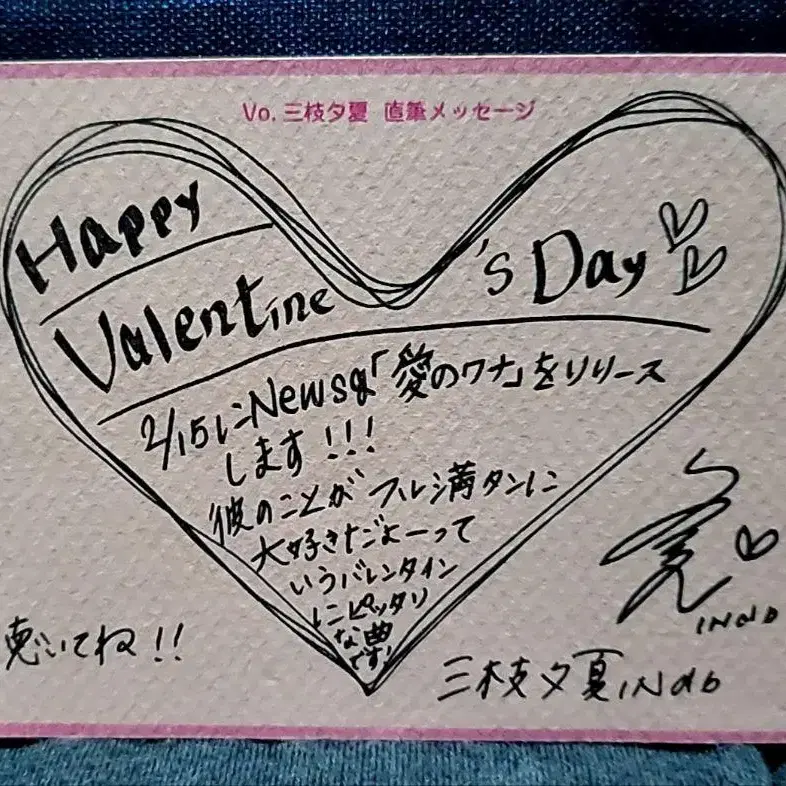 Vo. 三枝夕夏 直筆メッセージ
Happy
Valentine's Day
2/15にNewsg「愛のワナ」をリリース
します!!!
彼のことが フルシ満タンに
大好きだよーって
いうバレンタイン
にピッタリ
な曲
です!
聴いてね!!
三枝夕夏 IN db
IN db